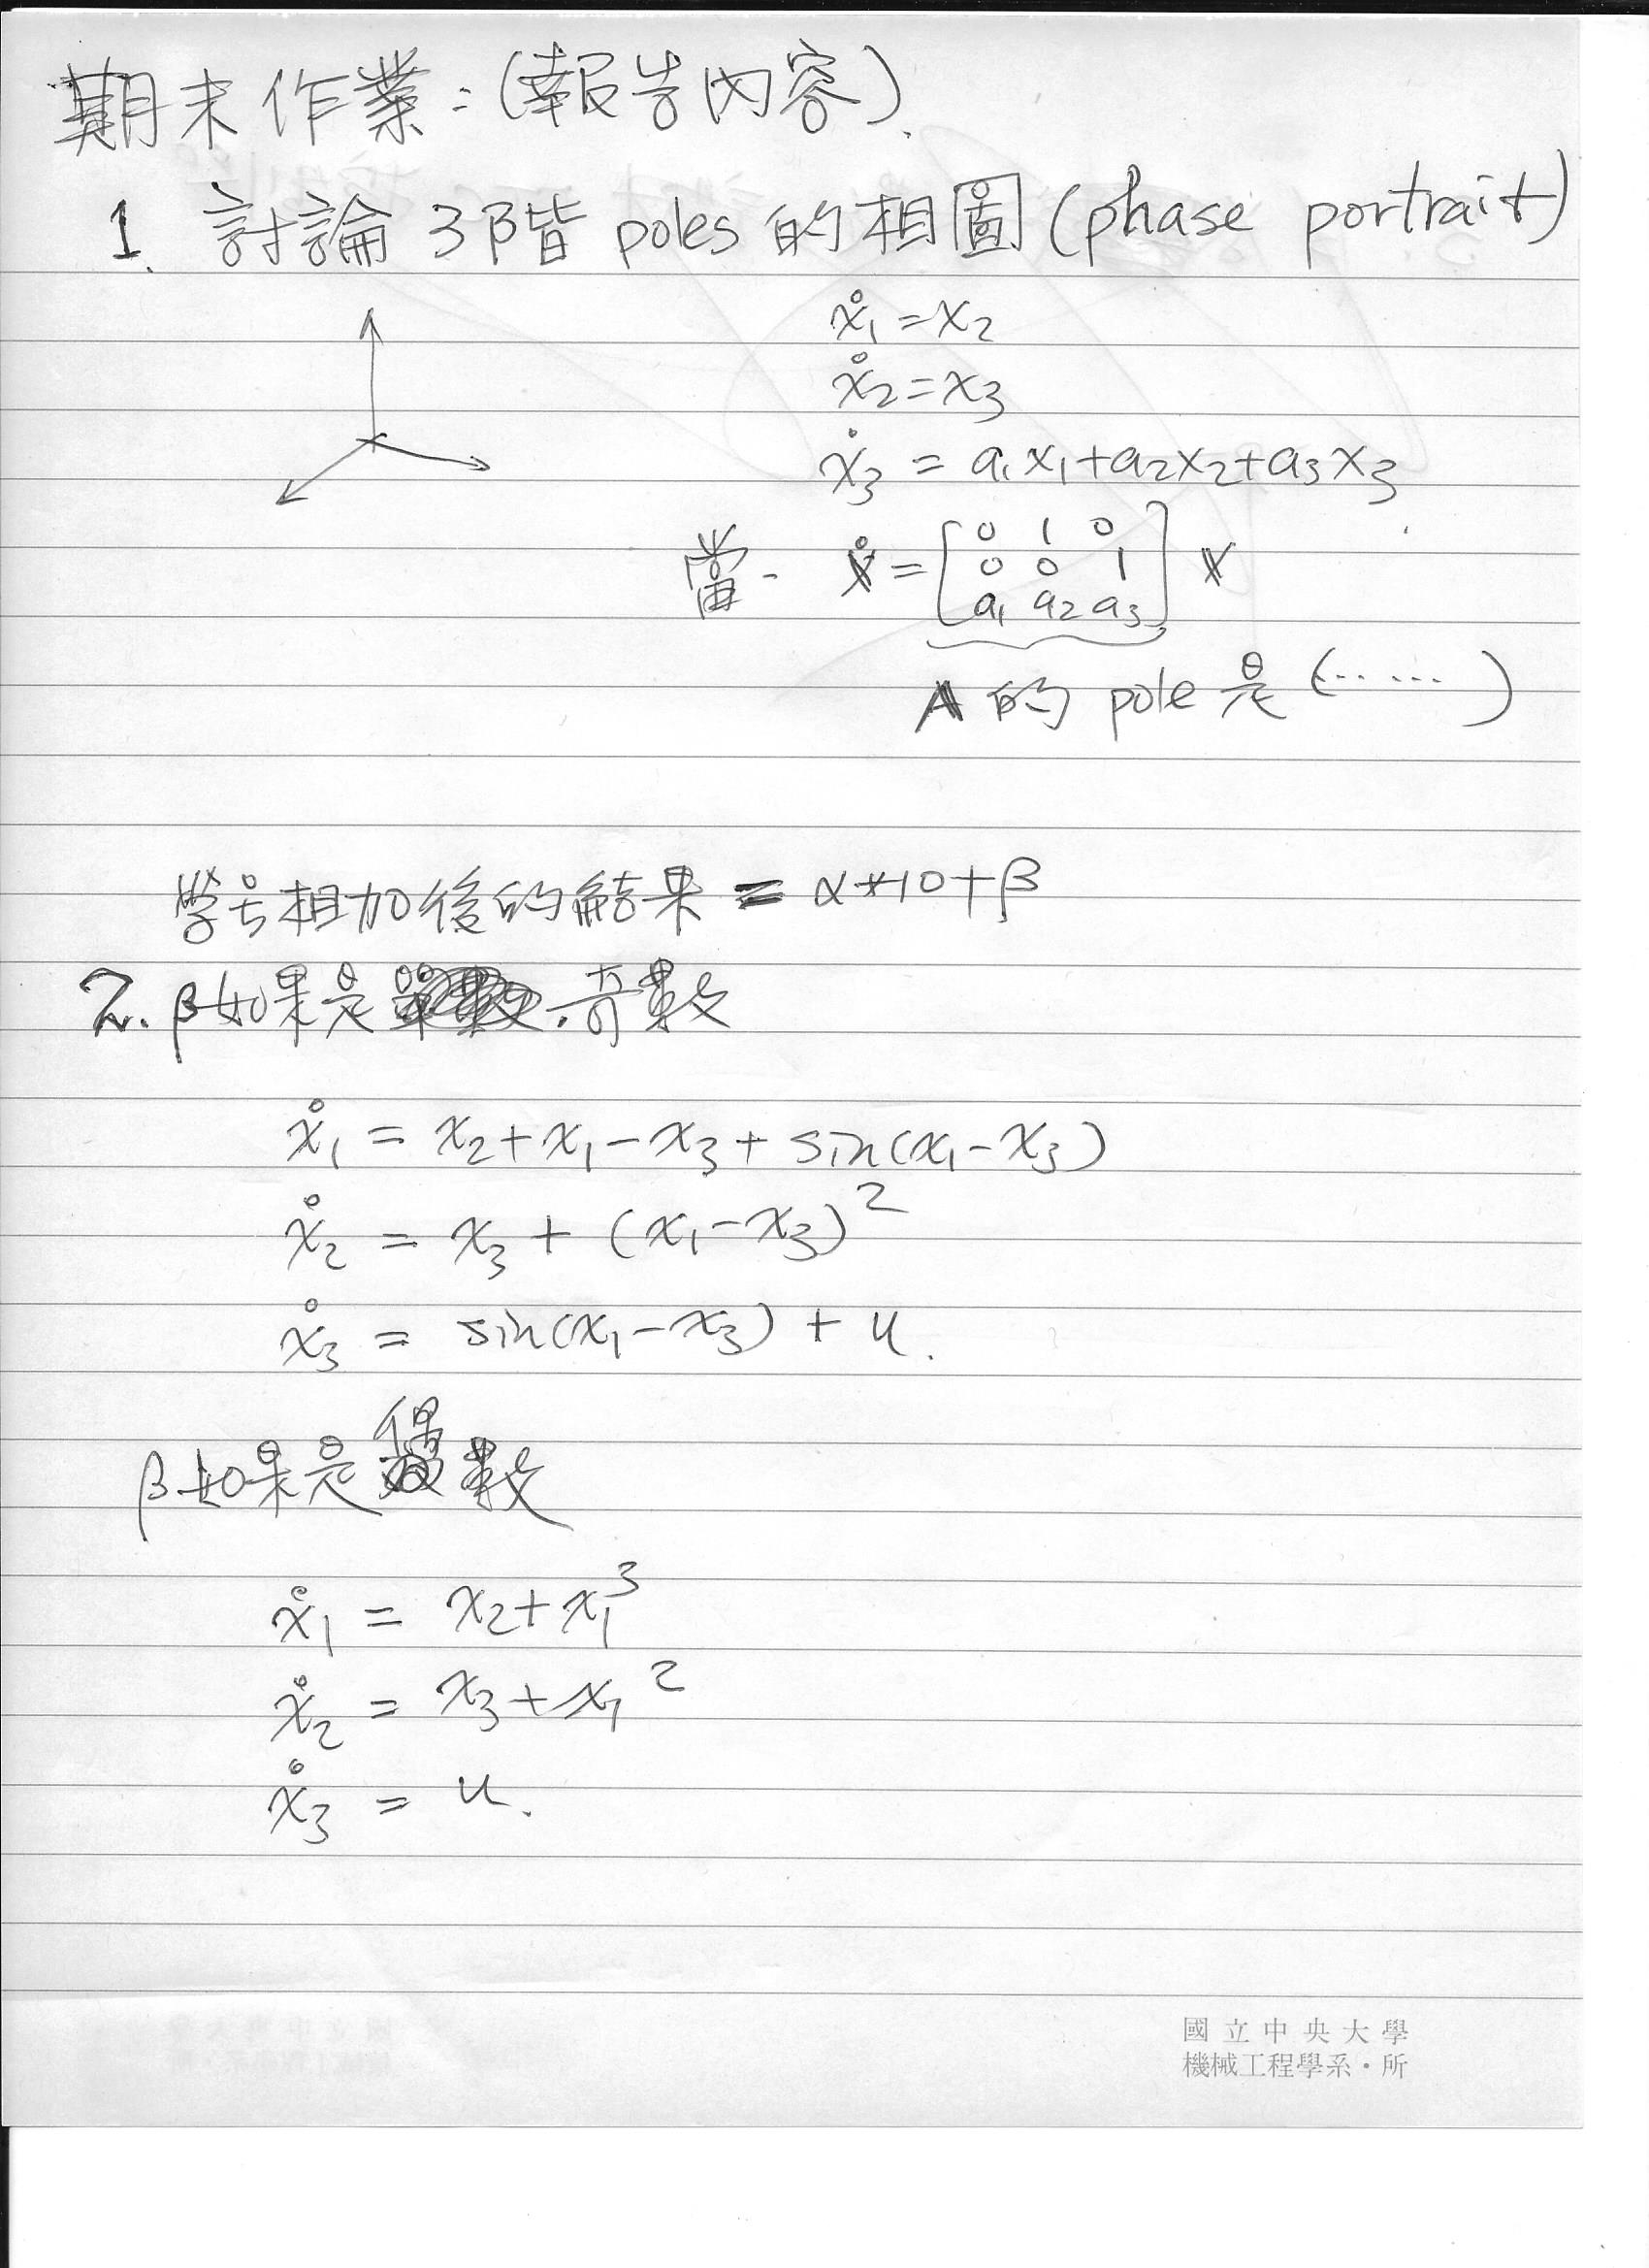 期末作業:(報告內容).
1. 討論 3階 poles 的相圖 (phase portrait)
ẋ₁ = x₂
ẋ₂ = x₃
ẋ₃ = a₁x₁+a₂x₂+a₃x₃
當. ẋ = [0 1 0
0 0 1
a₁ a₂ a₃] x
A 的 pole 是 (‥ ‥‥)
學号相加後的結果 = α*10+β
2. β如果是 . 奇數
ẋ₁ = x₂+x₁-x₃+sin(x₁-x₃)
ẋ₂ = x₃ + (x₁-x₃)²
ẋ₃ = sin(x₁-x₃) + u.
β如果是偶數
ẋ₁ = x₂+x₁³
ẋ₂ = x₃+x₁²
ẋ₃ = u.
國立中央大學
機械工程學系·所